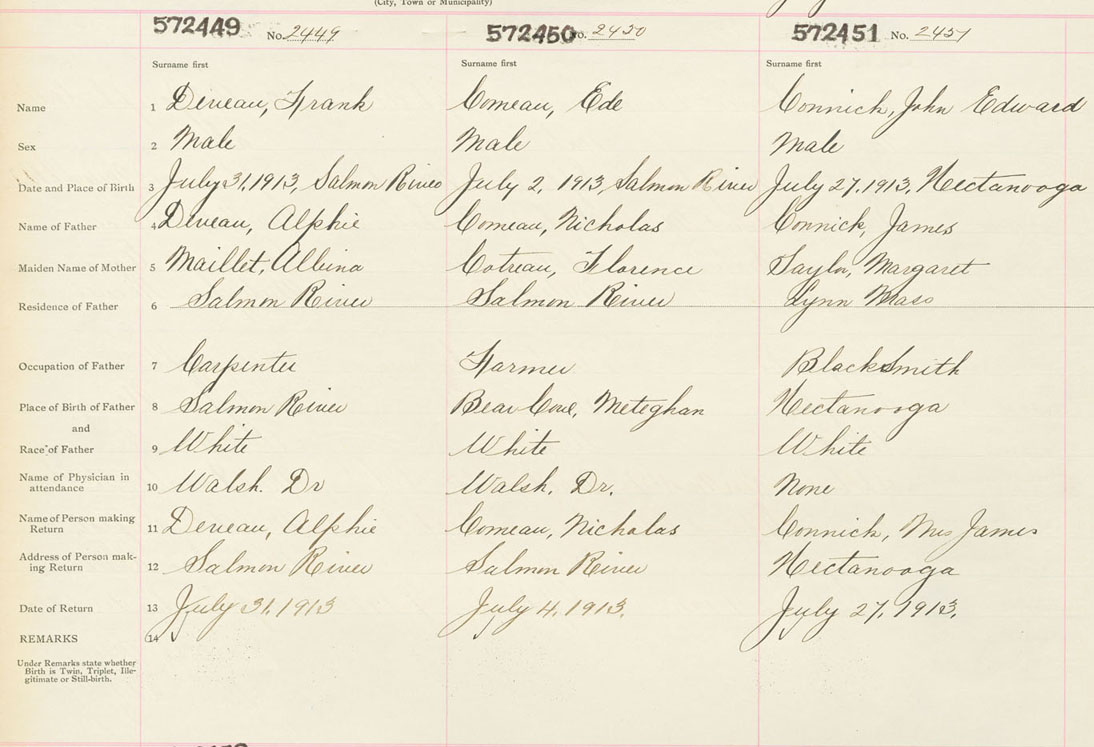 (City, Town or Municipality)
572449 No. 2449 572450 No. 2450 572451 No. 2451
Surname first Surname first Surname first
Name 1 Deveau, Frank Comeau, Ede Connick, John Edward
Sex 2 Male Male Male
Date and Place of Birth 3 July 31, 1913, Salmon River July 2, 1913, Salmon River July 27, 1913, Hectanooga
Name of Father 4 Deveau, Alphie Comeau, Nicholas Connick, James
Maiden Name of Mother 5 Maillet, Albina Cotreau, Florence Saylor, Margaret
Residence of Father 6 Salmon River Salmon River Lynn Mass
Occupation of Father 7 Carpenter Farmer BlackSmith
Place of Birth of Father 8 Salmon River Bear Cove, Meteghan Hectanooga
and
Race of Father 9 White White White
Name of Physician in
attendance 10 Walsh. Dr Walsh, Dr. None
Name of Person making
Return 11 Deveau, Alphie Comeau, Nicholas Connick, Mrs James
Address of Person mak-
ing Return 12 Salmon River Salmon River Hectanooga
Date of Return 13 July 31, 1913 July 4, 1913. July 27, 1913.
REMARKS 14
Under Remarks state whether
Birth is Twin, Triplet, Ille-
gitimate or Still-birth.